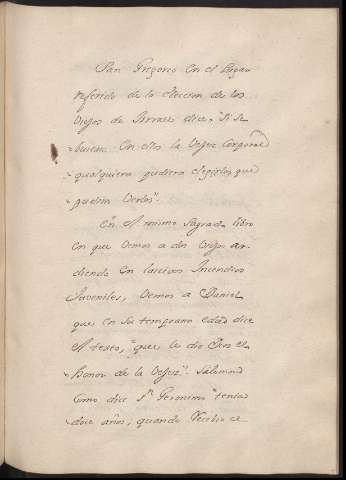 San Gregorio en el lugar
referido de la eleccion de los
Viejos de Israel dice, "Si se
buscara en ellos la Vejez Corporal
qualquiera pudiera elegirlos, que
pudiera Verlos".
En el mismo Sagrado libro
con que Vemos a dos Viejos ar-
diendo en lacivos Incendios
Juveniles, Vemos a Daniel
que en su temprana edad dice
el texto, "que le dio Dios el
honor de la Vejez". Salomon
Como dice Sn. Geronimo "tenia
doce años, quando recibio el